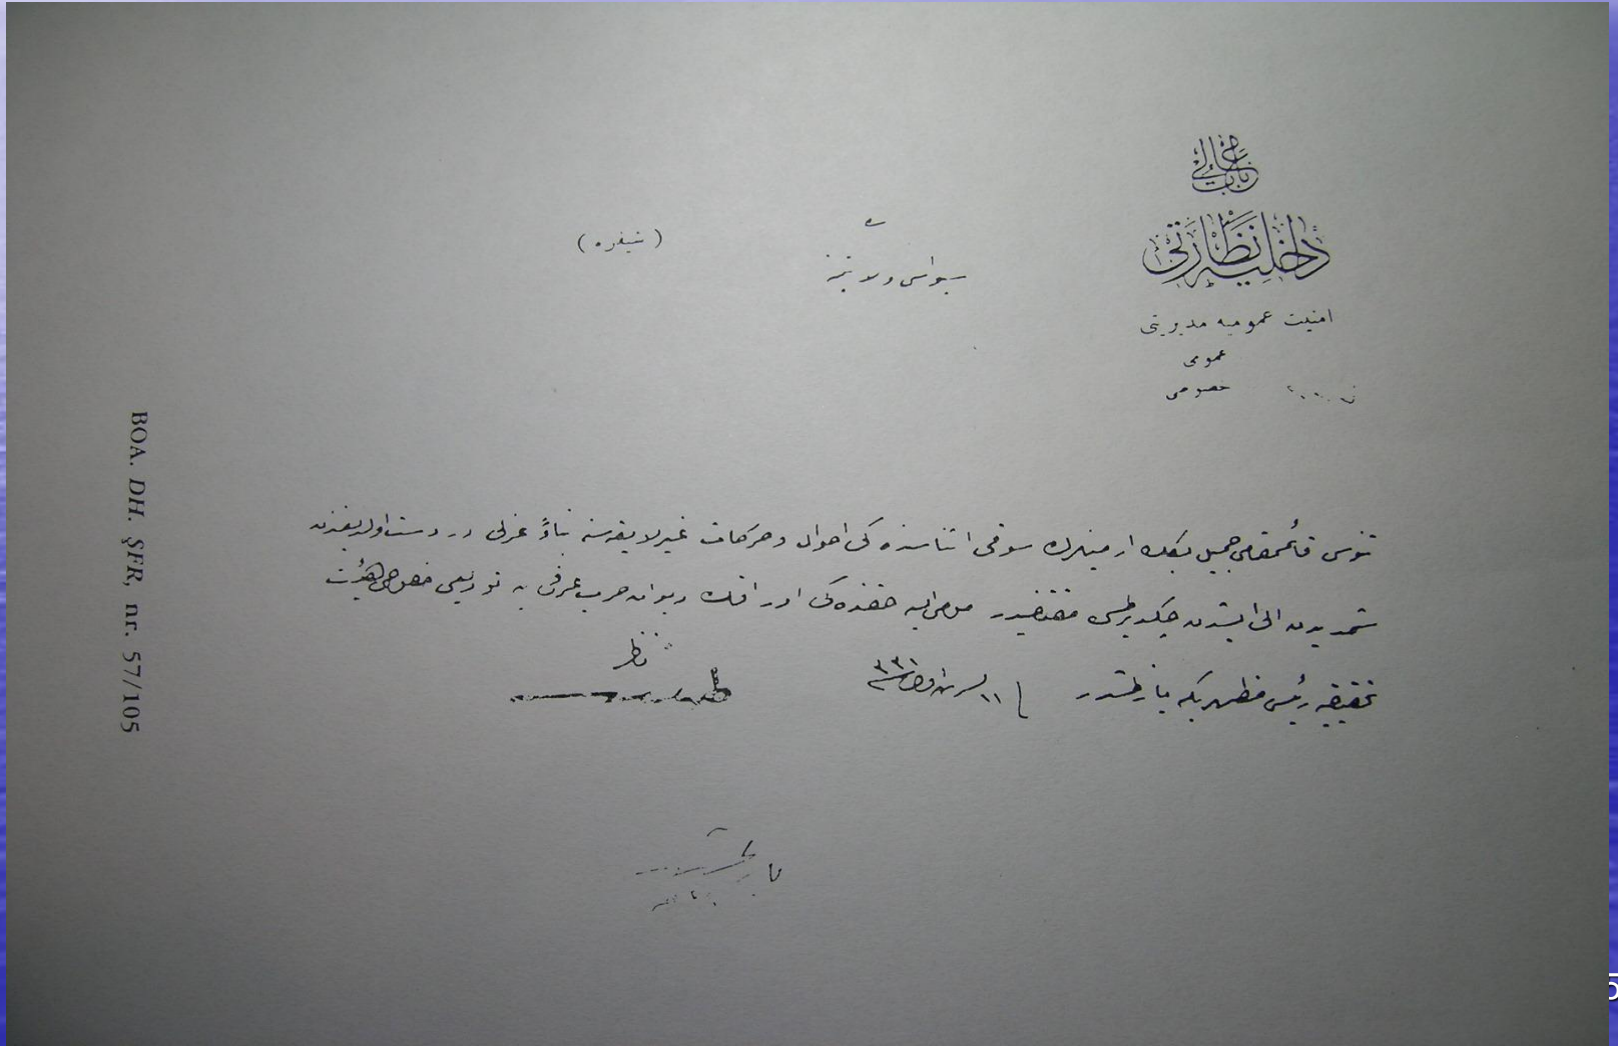 باب عالی
داخلیه نظارتی
امنیت عمومیه مدیریتی
عمومی
خصوصی
(شیفره)
سیواس ولایتنه
تنوس قائممقامی جمیل بكك ارمنیلرك سوقی اثناسنده كی احوال و حركات غیر لایقه‌سنه بناءً عزلی در دست اولدیغندن
شمدیدن الی ایشدن چكدیرلمسی مقتضیدر مومی الیه حقنده كی اوراقك دیوان حرب عرفی یه تودیعی خصوصی هیئت
تحقیقیه رئیسی مظهر بكه یازلمشدر
١١ تشرین اول سنه ٣٣١
ناظر
BOA. DH. ŞFR, nr. 57/105
5